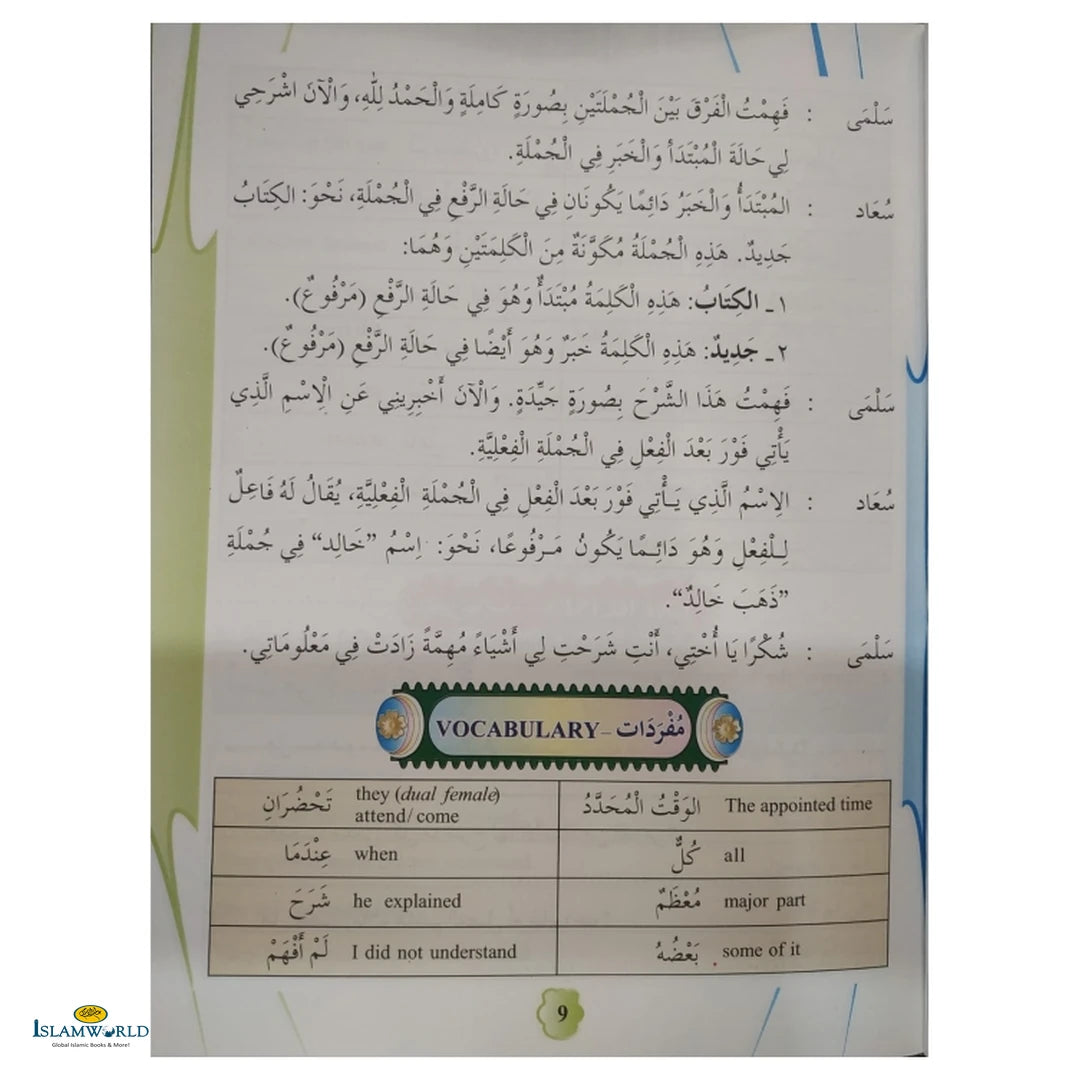 سَلْمَى : فَهِمْتُ الْفَرْقَ بَيْنَ الْجُمْلَتَيْنِ بِصُورَةٍ كَامِلَةٍ وَالْحَمْدُ لِلّٰهِ، وَالْآنَ اشْرَحِي
لِي حَالَةَ الْمُبْتَدَأِ وَالْخَبَرِ فِي الْجُمْلَةِ.
سُعَاد : المُبْتَدَأُ وَالْخَبَرُ دَائِمًا يَكُونَانِ فِي حَالَةِ الرَّفْعِ فِي الْجُمْلَةِ، نَحْوَ: الكِتَابُ
جَدِيدٌ. هَذِهِ الْجُمْلَةُ مُكَوَّنَةٌ مِنَ الْكَلِمَتَيْنِ وَهُمَا:
١ـ الكِتَابُ: هَذِهِ الْكَلِمَةُ مُبْتَدَأٌ وَهُوَ فِي حَالَةِ الرَّفْعِ (مَرْفُوعٌ).
٢ـ جَدِيدٌ: هَذِهِ الْكَلِمَةُ خَبَرٌ وَهُوَ أَيْضًا فِي حَالَةِ الرَّفْعِ (مَرْفُوعٌ).
سَلْمَى : فَهِمْتُ هَذَا الشَّرْحَ بِصُورَةٍ جَيِّدَةٍ. وَالْآنَ أَخْبِرِينِي عَنِ الْاِسْمِ الَّذِي
يَأْتِي فَوْرَ بَعْدَ الْفِعْلِ فِي الْجُمْلَةِ الْفِعْلِيَّةِ.
سُعَاد : الاِسْمُ الَّذِي يَأْتِي فَوْرَ بَعْدَ الْفِعْلِ فِي الْجُمْلَةِ الْفِعْلِيَّةِ، يُقَالُ لَهُ فَاعِلٌ
لِلْفِعْلِ وَهُوَ دَائِمًا يَكُونُ مَرْفُوعًا، نَحْوَ: اِسْمُ ”خَالِد“ فِي جُمْلَةِ
”ذَهَبَ خَالِدٌ“.
سَلْمَى : شُكْرًا يَا أُخْتِي، أَنْتِ شَرَحْتِ لِي أَشْيَاءً مُهِمَّةً زَادَتْ فِي مَعْلُومَاتِي.
VOCABULARY – مُفْرَدَات
تَحْضُرَانِ they (dual female) attend/come
الوَقْتُ الْمُحَدَّدُ The appointed time
عِنْدَمَا when
كُلٌّ all
شَرَحَ he explained
مُعْظَمٌ major part
لَمْ أَفْهَمْ I did not understand
بَعْضُهُ some of it
9
ISLAMWORLD
Global Islamic Books & More!